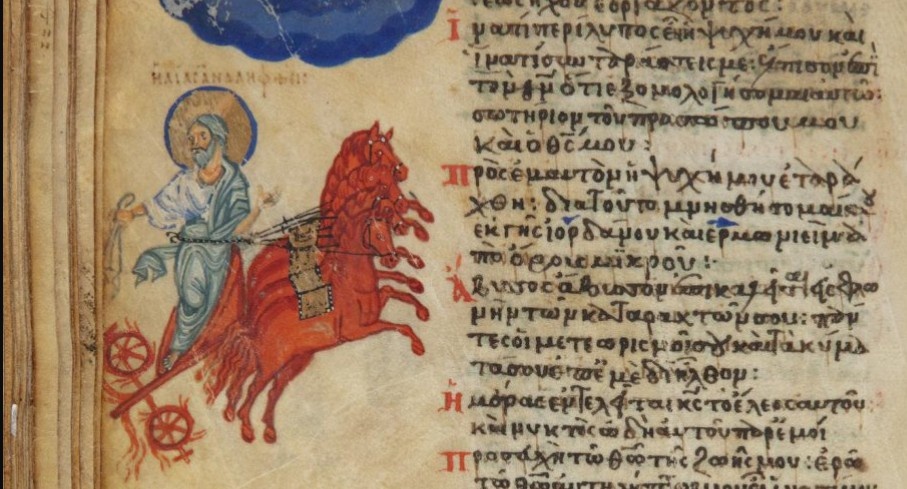 ΗΛΙΑC ΑΝΑΛΗΦΘ
ἵνα τί περίλυπος εἶ ἡ ψυχή μου καὶ
ἵνα τί συνταράσσεις με: ἔλπισον ἐπὶ
τὸν θν ὅτι ἐξομολογήσομαι αὐτῶ:
σωτήριον τοῦ προσώπου μου
καὶ ὁ θς μου:
Πρὸς ἐμαυτὸν ἡ ψυχή μου ἐταρά
χθη: διὰ τοῦτο μνησθήσομαί σου
ἐκ γῆς ἰορδάνου καὶ ἐρμωνιεὶμ ἀ
πὸ ὄρους μικροῦ:
Ἄβυσσος ἄβυσσον ἐπικαλεῖται εἰς φω
νὴν τῶν καταρακτῶν σου: πάν
τες οἱ μετεωρισμοί σου καὶ τὰ κύμα
τά σου ἐπ' ἐμὲ διῆλθον:
Ἡμέρας ἐντελεῖται κς τὸ ἔλεος αὐτοῦ
καὶ νυκτὸς ὠδὴ αὐτοῦ παρ' ἐμοί
Προσευχὴ τῶ θῶ τῆς ζωῆς μου: ἐρῶ
τῶ θῶ